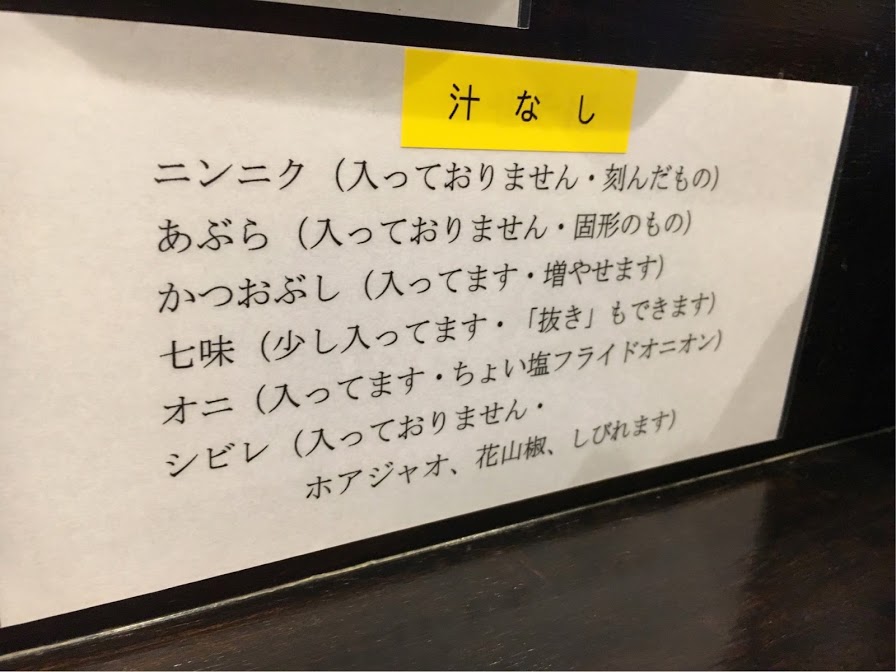 汁なし
ニンニク（入っておりません・刻んだもの）
あぶら（入っておりません・固形のもの）
かつおぶし（入ってます・増やせます）
七味（少し入ってます・「抜き」もできます）
オニ（入ってます・ちょい塩フライドオニオン）
シビレ（入っておりません・
ホアジャオ、花山椒、しびれます）